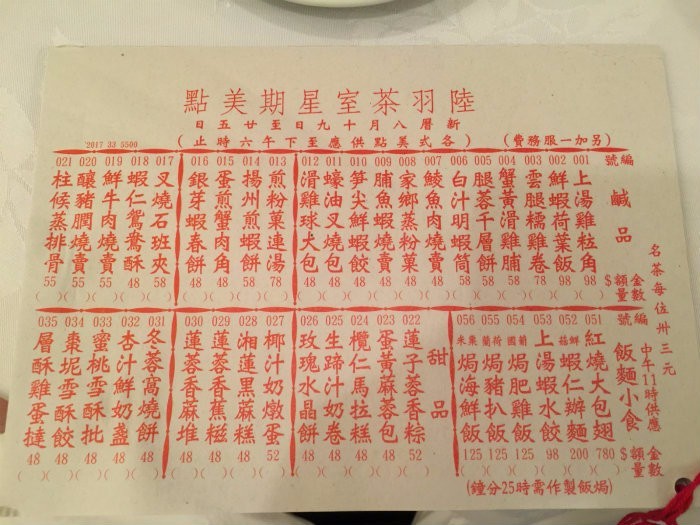 陸羽茶室星期美點
新曆八月十九日至廿五日
(另加一服務費)
(各式美點供應至下午六時止)
'2017 33 5500
名茶每位卅三元
編號 鹹品 金額$ 數量
001 上湯雞粒角 98 ( )
002 鮮蝦荷葉飯 98 ( )
003 雲腿糯雞卷 78 ( )
004 蟹黃滑雞脯 58 ( )
005 腿蓉千層餅 58 ( )
006 白汁明蝦筒 58 ( )
007 鯪魚肉燒賣 48 ( )
008 家鄉蒸粉菓 48 ( )
009 脯魚蝦燒賣 48 ( )
010 笋尖鮮蝦餃 48 ( )
011 蠔油叉燒包 48 ( )
012 滑雞球大包 48 ( )
013 煎粉菓連湯 78 ( )
014 揚州煎蝦餅 58 ( )
015 蛋煎蟹肉角 48 ( )
016 銀芽蝦春餅 48 ( )
017 叉燒石班夾 48 ( )
018 蝦仁鴛鴦酥 48 ( )
019 鮮牛肉燒賣 55 ( )
020 釀豬膶燒賣 55 ( )
021 柱候蒸排骨 55 ( )
中午11時供應
編號 飯麵小食 金額$ 數量
051 紅燒大包翅 780 ( )
052 鮮菇蝦仁辦麵 200 ( )
053 上湯蝦水餃 98 ( )
054 葡國焗肥雞飯 125 ( )
055 荷蘭焗豬扒飯 125 ( )
056 粟米焗海鮮飯 125 ( )
(焗飯製作需時25分鐘)
甜品
022 蓮子蓉香粽 52 ( )
023 蛋黃麻蓉包 48 ( )
024 欖仁馬拉糕 48 ( )
025 生蹄汁奶卷 48 ( )
026 玫瑰水晶餅 48 ( )
027 椰汁奶燉蛋 52 ( )
028 湘蓮黑蔴糕 48 ( )
029 蓮蓉香蕉糍 48 ( )
030 蓮蓉香麻堆 48 ( )
031 冬蓉窩燒餅 48 ( )
032 杏汁鮮奶盞 48 ( )
033 蜜桃雪酥批 48 ( )
034 棗坭雪酥餃 48 ( )
035 層酥雞蛋撻 48 ( )